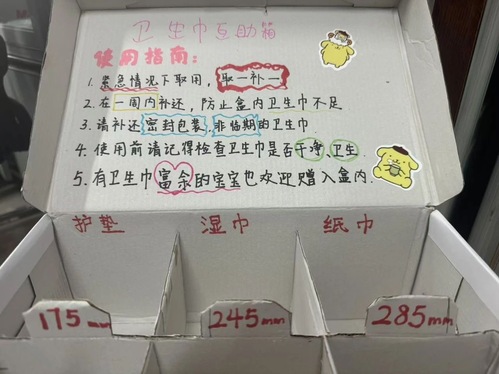 卫生巾互助箱
使用指南:
1. 紧急情况下取用,取一补一
2. 在一周内补还,防止盒内卫生巾不足
3. 请补还密封包装,非临期的卫生巾
4. 使用前请记得检查卫生巾是否干净、卫生.
5. 有卫生巾富余的宝宝也欢迎赠入盒内.
护垫 湿巾 纸巾
175mm 245mm 285mm